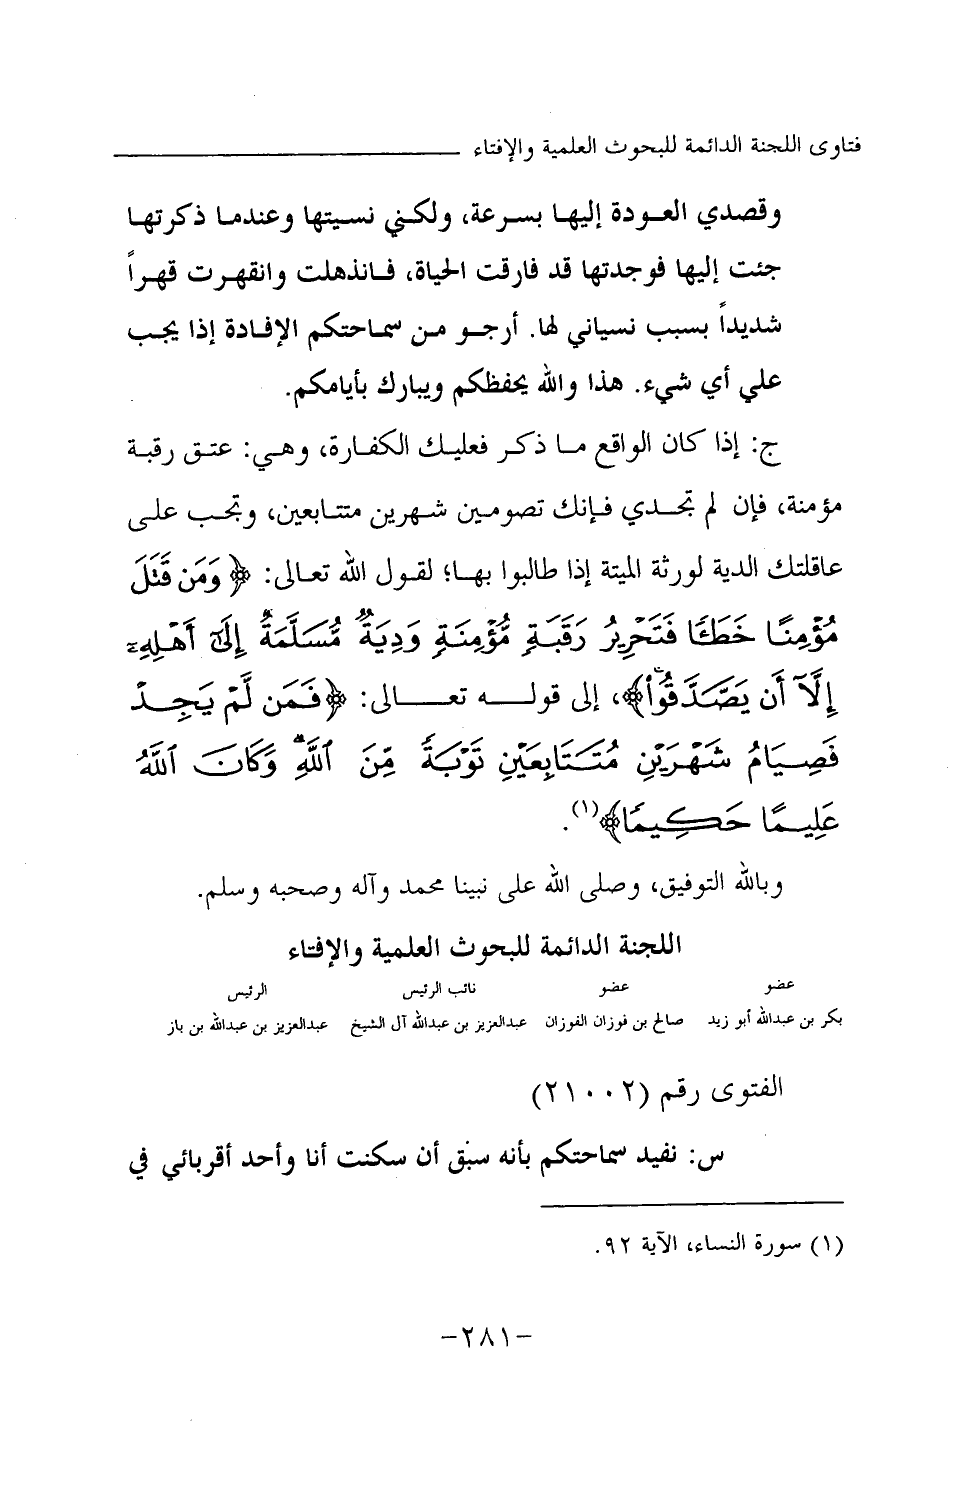 فتاوى اللجنة الدائمة للبحوث العلمية والإفتاء
وقصدي العودة إليها بسرعة، ولكني نسيتها وعندما ذكرتها
جئت إليها فوجدتها قد فارقت الحياة، فانذهلت وانقهرت قهراً
شديداً بسبب نسياني لها. أرجو من سماحتكم الإفادة إذا يجب
علي أي شيء. هذا والله يحفظكم ويبارك بأيامكم.
ج: إذا كان الواقع ما ذكر فعليك الكفارة، وهي: عتق رقبة
مؤمنة، فإن لم تجدي فإنك تصومين شهرين متتابعين، وتجب على
عاقلتك الدية لورثة الميتة إذا طالبوا بها؛ لقول الله تعالى: ﴿وَمَن قَتَلَ
مُؤْمِنًا خَطَـًٔا فَتَحْرِيرُ رَقَبَةٍ مُّؤْمِنَةٍ وَدِيَةٌ مُّسَلَّمَةٌ إِلَىٰٓ أَهْلِهِۦٓ
إِلَّآ أَن يَصَّدَّقُوا۟﴾، إلى قوله تعالى: ﴿فَمَن لَّمْ يَجِدْ
فَصِيَامُ شَهْرَيْنِ مُتَتَابِعَيْنِ تَوْبَةً مِّنَ ٱللَّهِ ۗ وَكَانَ ٱللَّهُ
عَلِيمًا حَكِيمًا﴾(١).
وبالله التوفيق، وصلى الله على نبينا محمد وآله وصحبه وسلم.
اللجنة الدائمة للبحوث العلمية والإفتاء
عضو عضو نائب الرئيس الرئيس
بكر بن عبدالله أبو زيد صالح بن فوزان الفوزان عبدالعزيز بن عبدالله آل الشيخ عبدالعزيز بن عبدالله بن باز
الفتوى رقم (٢١٠٠٢)
س: نفيد سماحتكم بأنه سبق أن سكنت أنا وأحد أقربائي في
(١) سورة النساء، الآية ٩٢.
-٢٨١-